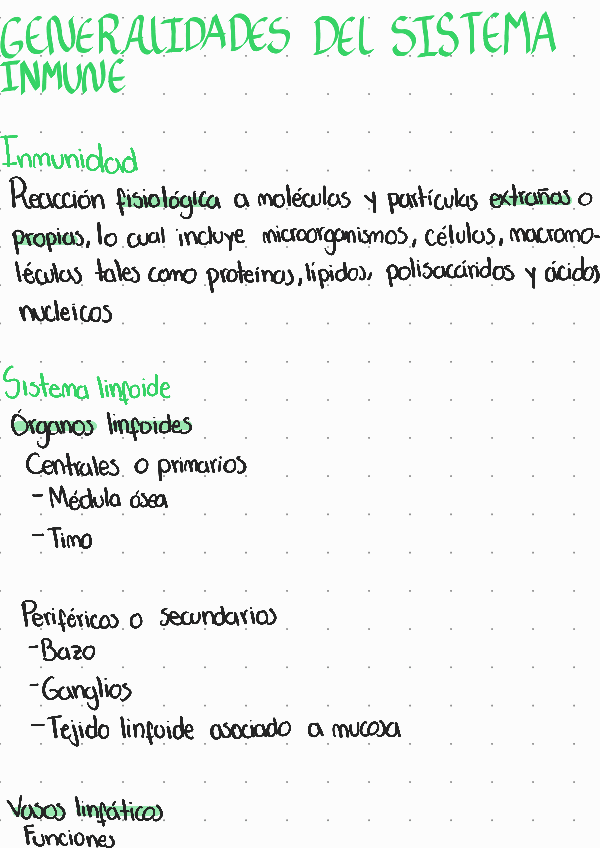 GENERALIDADES DEL SISTEMA
INMUNE
Inmunidad
Reacción fisiológica a moléculas y partículas extrañas o
propias, lo cual incluye microorganismos, células, macromo-
léculas tales como proteínas, lípidos, polisacáridos y ácidos
nucleicos
Sistema linfoide
Órganos linfoides
Centrales o primarios
- Médula ósea
- Timo
Periféricos o secundarios
- Bazo
- Ganglios
- Tejido linfoide asociado a mucosa
Vasos linfáticos
Funciones